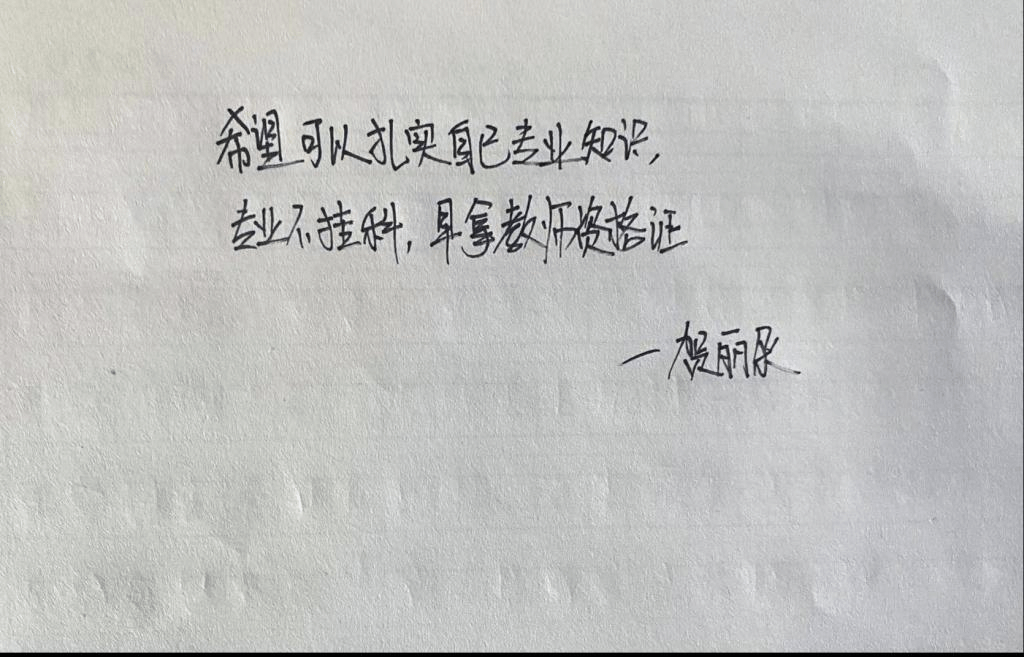 希望可以扎实自己专业知识,
专业不挂科,早拿教师资格证
—贺丽